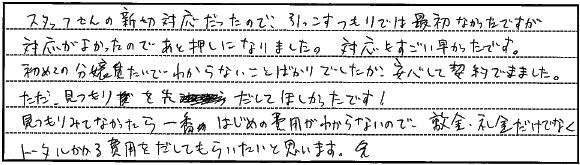 スタッフさんの親切対応だったので、引っこすつもりでは最初なかったですが
対応がよかったのであと押しになりました。対応もすごい早かったです。
初めての分譲賃たいでわからないことばかりでしたが、安心して契約できました。
ただ、見つもりを先だしてほしかったです！
見つもりみてなかったら一番はじめの費用がわからないので、敷金・礼金だけでなく
トータルかかる費用をだしてもらいたいと思います。